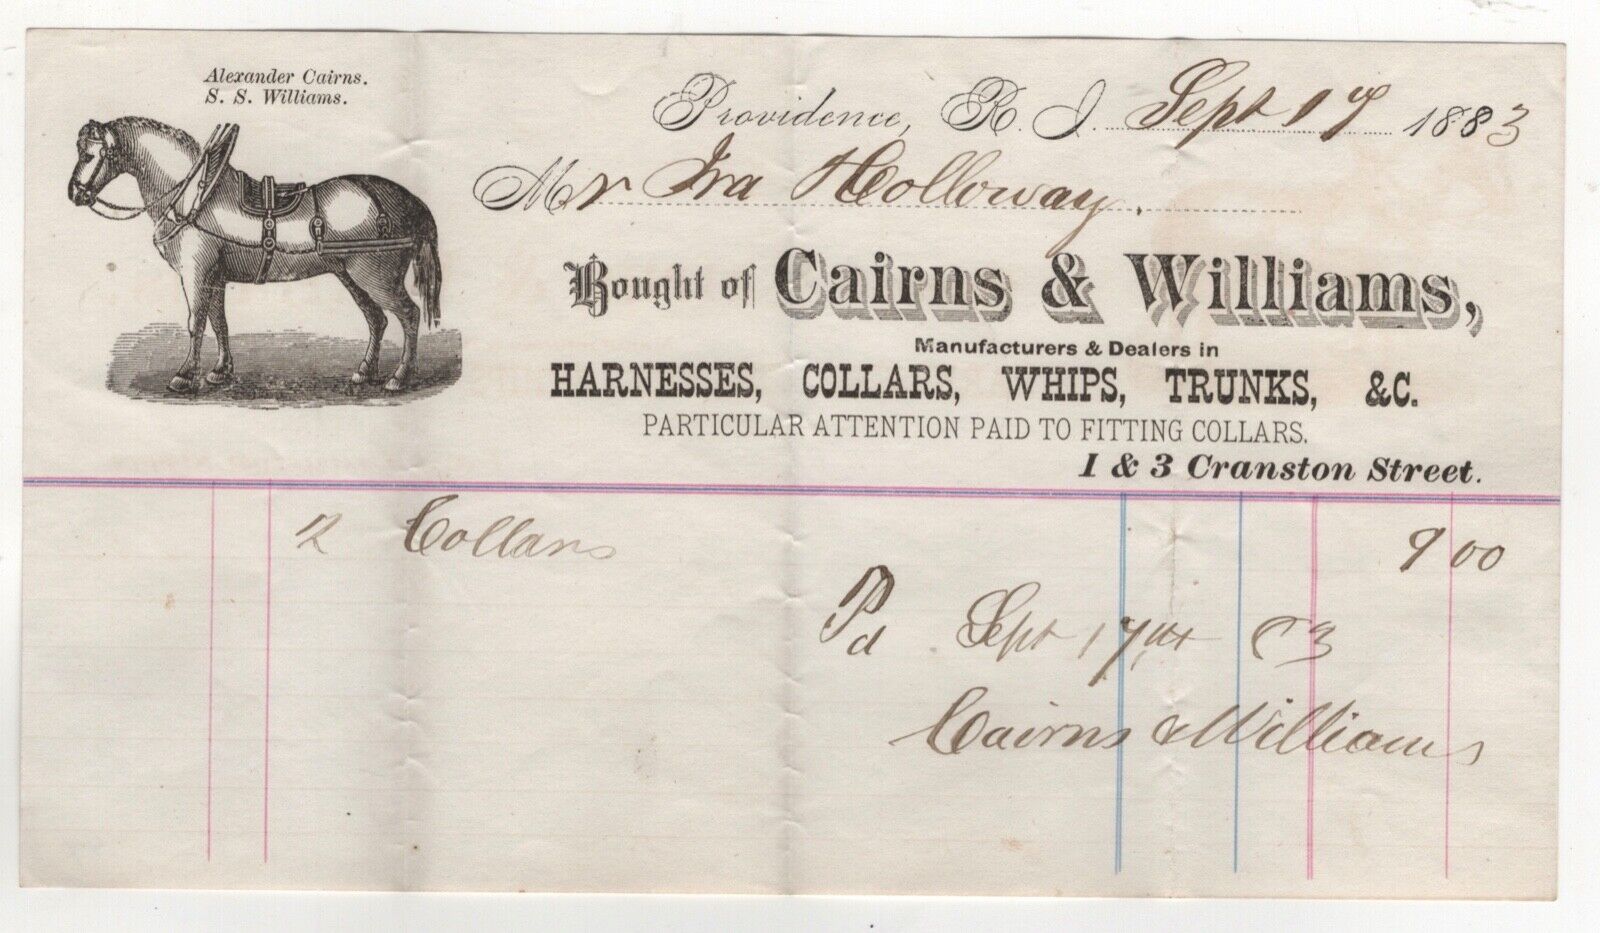 Alexander Cairns.
S. S. Williams.
Providence, R. I. Sept 17 1883
Mr Ira Holloway.
Bought of Cairns & Williams,
Manufacturers & Dealers in
HARNESSES, COLLARS, WHIPS, TRUNKS, &C.
PARTICULAR ATTENTION PAID TO FITTING COLLARS.
1 & 3 Cranston Street.
2 Collars 9 00
Pd Sept 17th 83
Cairns & Williams